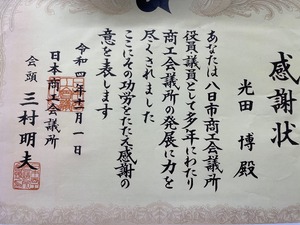 感謝状
光田博殿
あなたは八日市商工会議所
役員議員として多年にわたり
商工会議所の発展に力を
尽くされました
ここにその功労をたたえ感謝の
意を表します
令和四年十一月一日
日本商工会議所
会頭 三村明夫